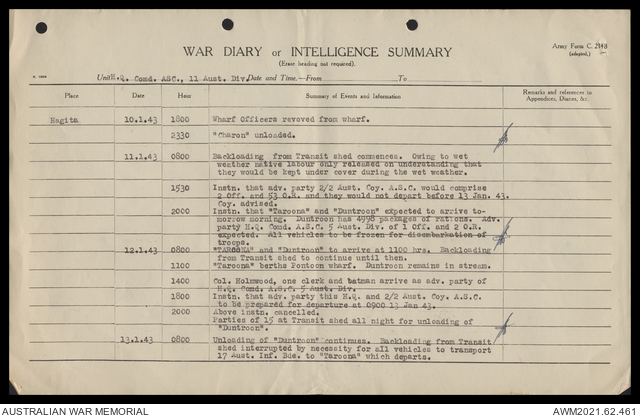 Army Form C. 2118
(adapted.)
WAR DIARY or INTELLIGENCE SUMMARY
(Erase heading not required).
Unit H.Q. Comd. ASC., 11 Aust. Div. Date and Time.—From To
Place Date Hour Summary of Events and Information Remarks and references to Appendices, Diaries, &c.
Hagita 10.1.43 1800 Wharf Officers revoved from wharf.
2330 "Charon" unloaded.
11.1.43 0800 Backloading from Transit shed commences. Owing to wet
weather native labour only released on understanding that
they would be kept under cover during the wet weather.
1530 Instn. that adv. party 2/2 Aust. Coy. A.S.C. would comprise
2 Off. and 53 O.R. and they would not depart before 13 Jan. 43.
Coy. advised.
2000 Instn. that "Taroona" and "Duntroon" expected to arrive to-
morrow morning. Duntroon has 4998 packages of rations. Adv.
party H.Q. Comd. A.S.C. 5 Aust. Div. of 1 Off. and 2 O.R.
expected. All vehicles to be frozen for disembarkation of
troops.
12.1.43 0800 "TAROONA" and "Duntroon" to arrive at 1100 hrs. Backloading
from Transit shed to continue until then.
1100 "Taroona" berths Pontoon wharf. Duntroon remains in stream.
1400 Col. Holmwood, one clerk and batman arrive as adv. party of
H.Q. Comd. A.S.C. 5 Aust. Div.
1800 Instn. that adv. party this H.Q. and 2/2 Aust. Coy. A.S.C.
to be prepared for departure at 0900 13 Jan 43.
2000 Above instn. cancelled.
Parties of 15 at Transit shed all night for unloading of
"Duntroon".
13.1.43 0800 Unloading of "Duntroon" continues. Backloading from Transit
shed interrupted by necessity for all vehicles to transport
17 Aust. Inf. Bde. to "Taroona" which departs.
AUSTRALIAN WAR MEMORIAL AWM2021.62.461